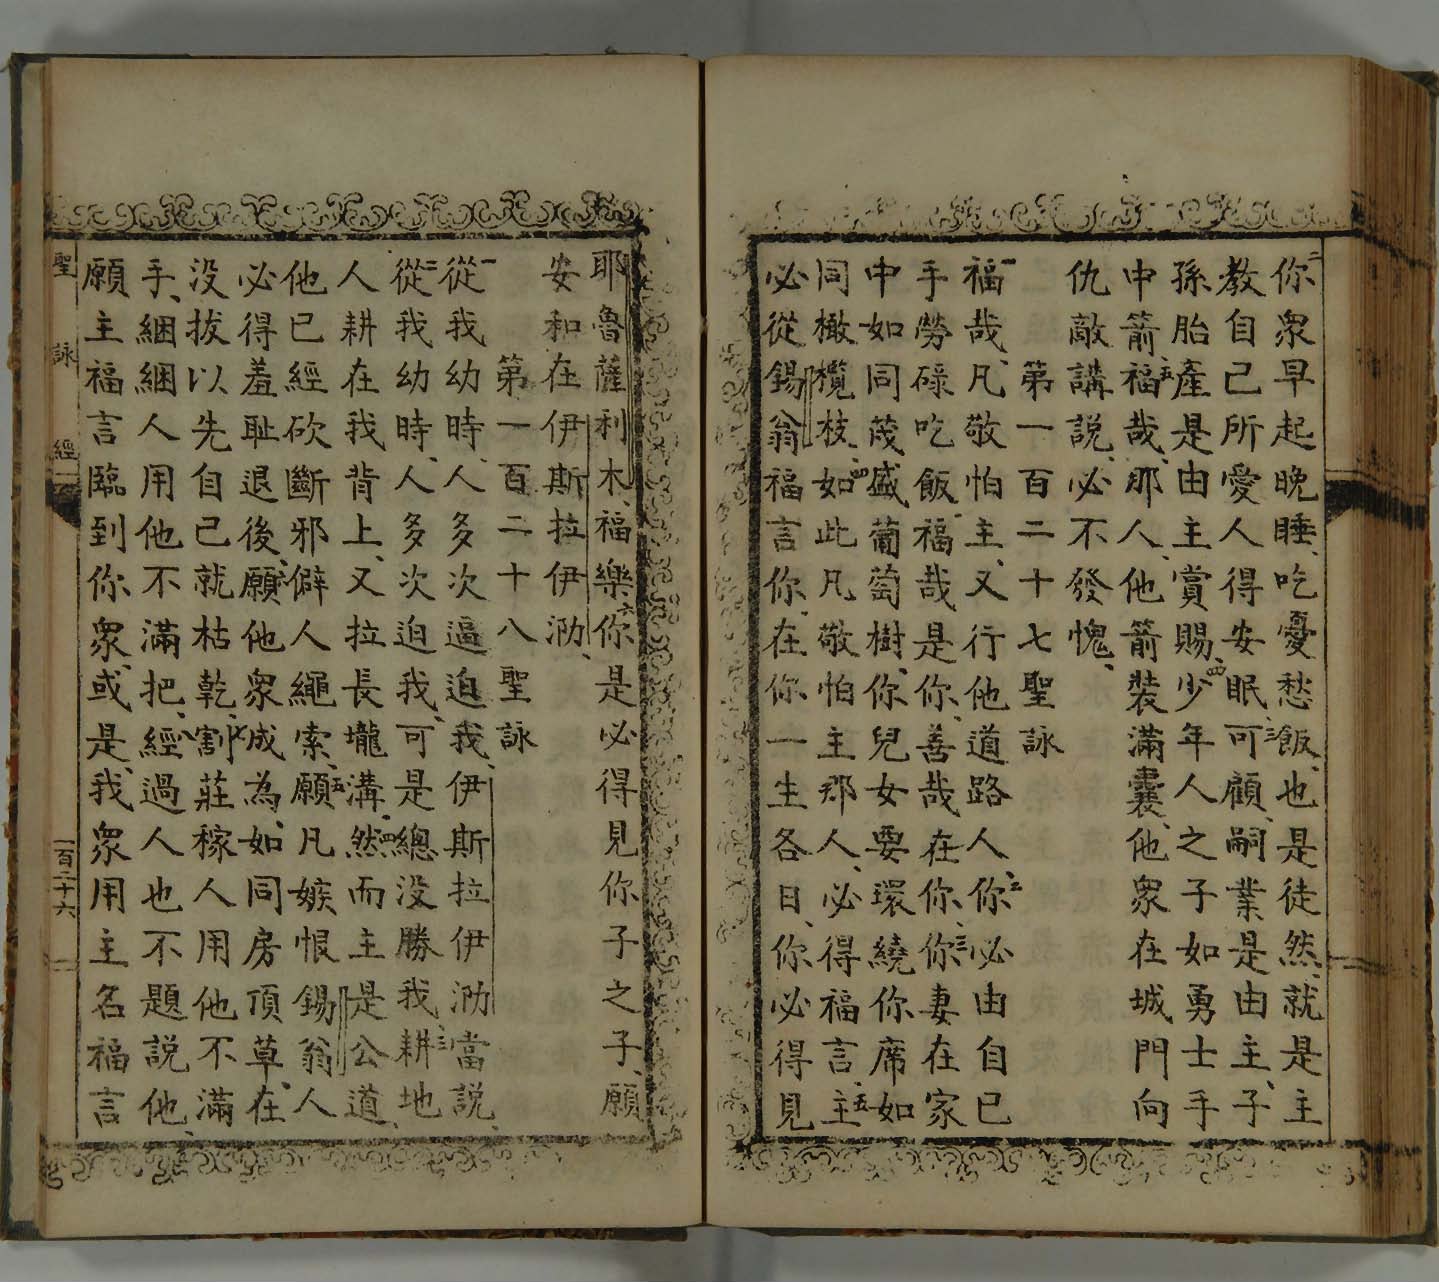 二你衆早起晚睡、吃憂愁飯、也是徒然、就是主
教自己所愛人得安眠、三可顧、嗣業是由主、子
孫胎產是由主賞賜、四少年人之子如勇士手
中箭、五福哉、那人、他箭裝滿囊、他衆在城門向
仇敵講說、必不發愧、
第一百二十七聖詠
一福哉、凡敬怕主、又行他道路人、二你必由自己
手勞碌吃飯、福哉是你、善哉在你、三你妻在家
中如同茂盛葡萄樹、你兒女要環繞你席如
同橄欖枝、四如此凡敬怕主那人、必得福言、五主
必從錫翁福言你、在你一生各日、你必得見
耶魯薩利木、福樂、六你是必得見你子之子、願
安和在伊斯拉伊泐、
第一百二十八聖詠
一從我幼時、人多次逼迫我、伊斯拉伊泐當說、
二從我幼時、人多次迫我、可是總没勝我、三耕地
人耕在我背上、又拉長壠溝、四然而主是公道、
他已經砍斷邪僻人繩索、五願凡嫉恨錫翁人
必得羞恥退後、六願他衆成為、如同房頂草、在
没拔以先自己就枯乾、七割莊稼人用他不滿
手、綑綑人用他不滿把、八經過人也不題說他、
願主福言臨到你衆、或是、我衆用主名福言
聖詠經 一百二十六